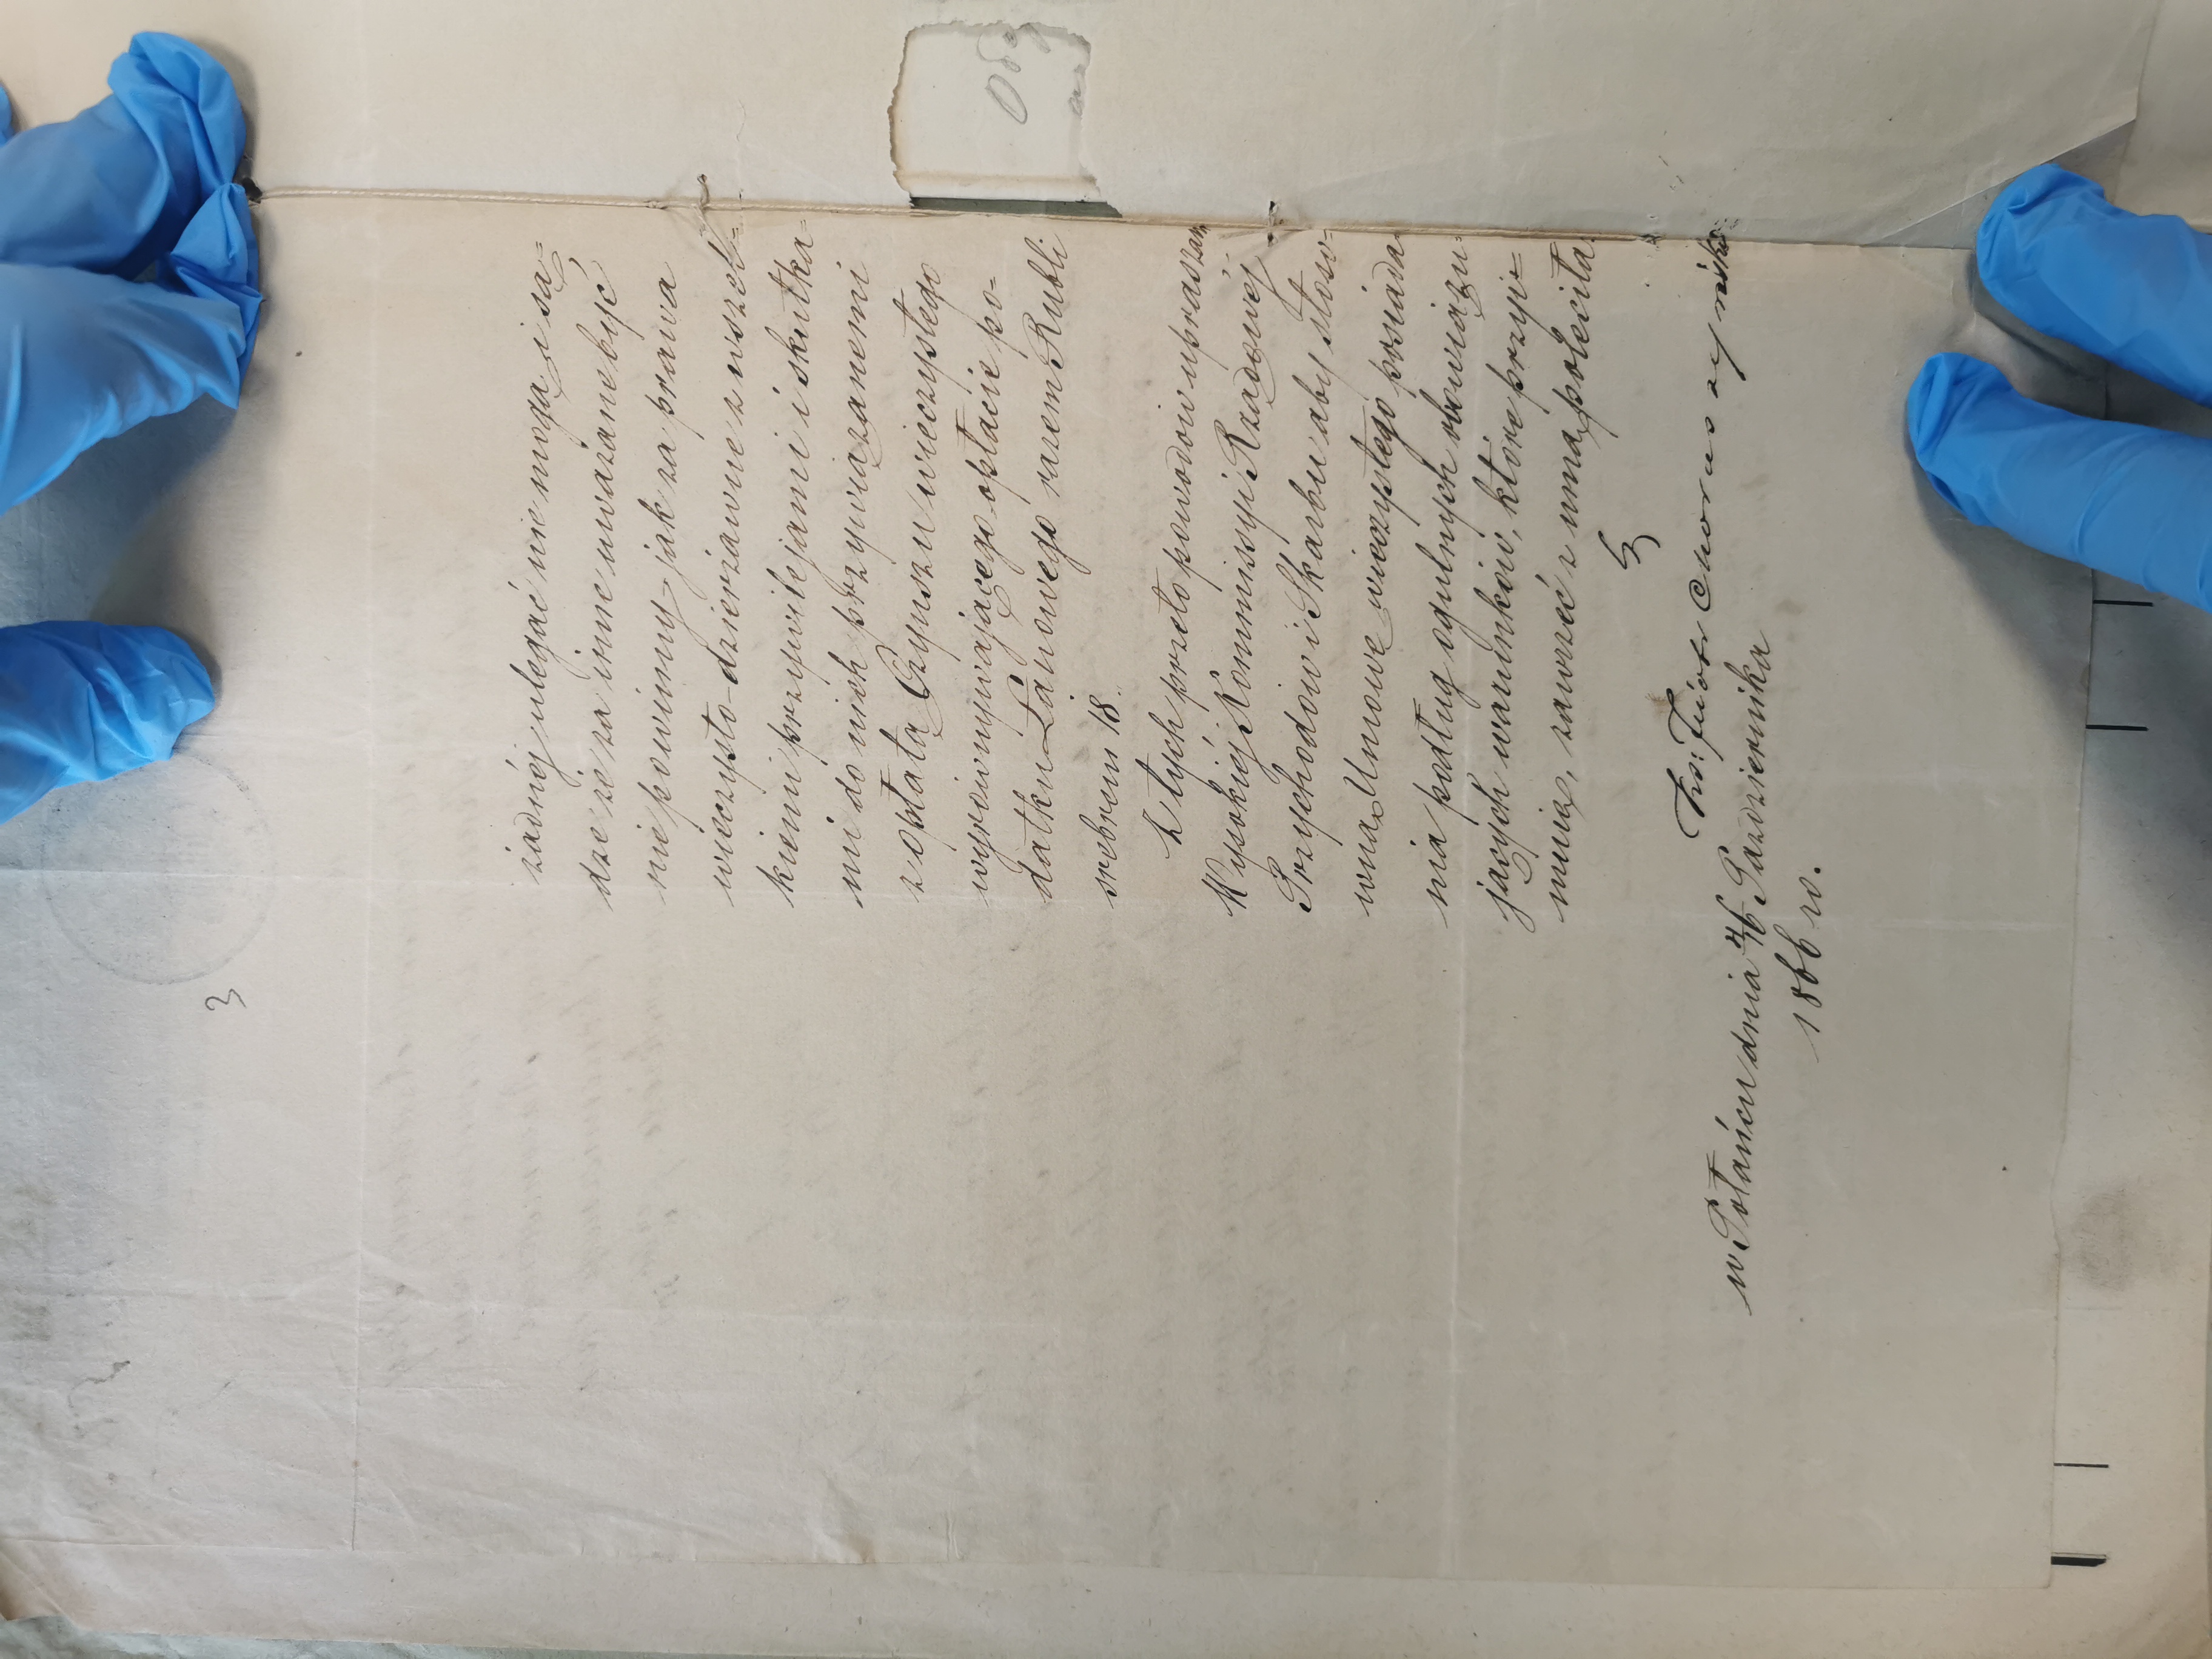 3
żadnéj ulegać nie mogą, i są=
dzę że za inne uważane być
nie powinny jak za prawa
wieczysto-dzierżawne z wszel=
kiemi przywilejami i skutka=
mi do nich przywiązanemi
z opłatą Czynszu wieczystego
wyrównywającego opłacie po=
datku Łanowego razem Rubli
srebrem 18.
Z tych przeto powodów upraszam
Wysokiéj Kommissyi Rządowéj
Przychodów i Skarbu aby stoso=
wną Umowę wieczystego posiada=
nia podług ogulnych obowiązu=
jących warunków, które przyj=
muię, zawrzéć z mną poleciła.
w Połańcu dnia 4/16 Pazdziernika
1866 r.